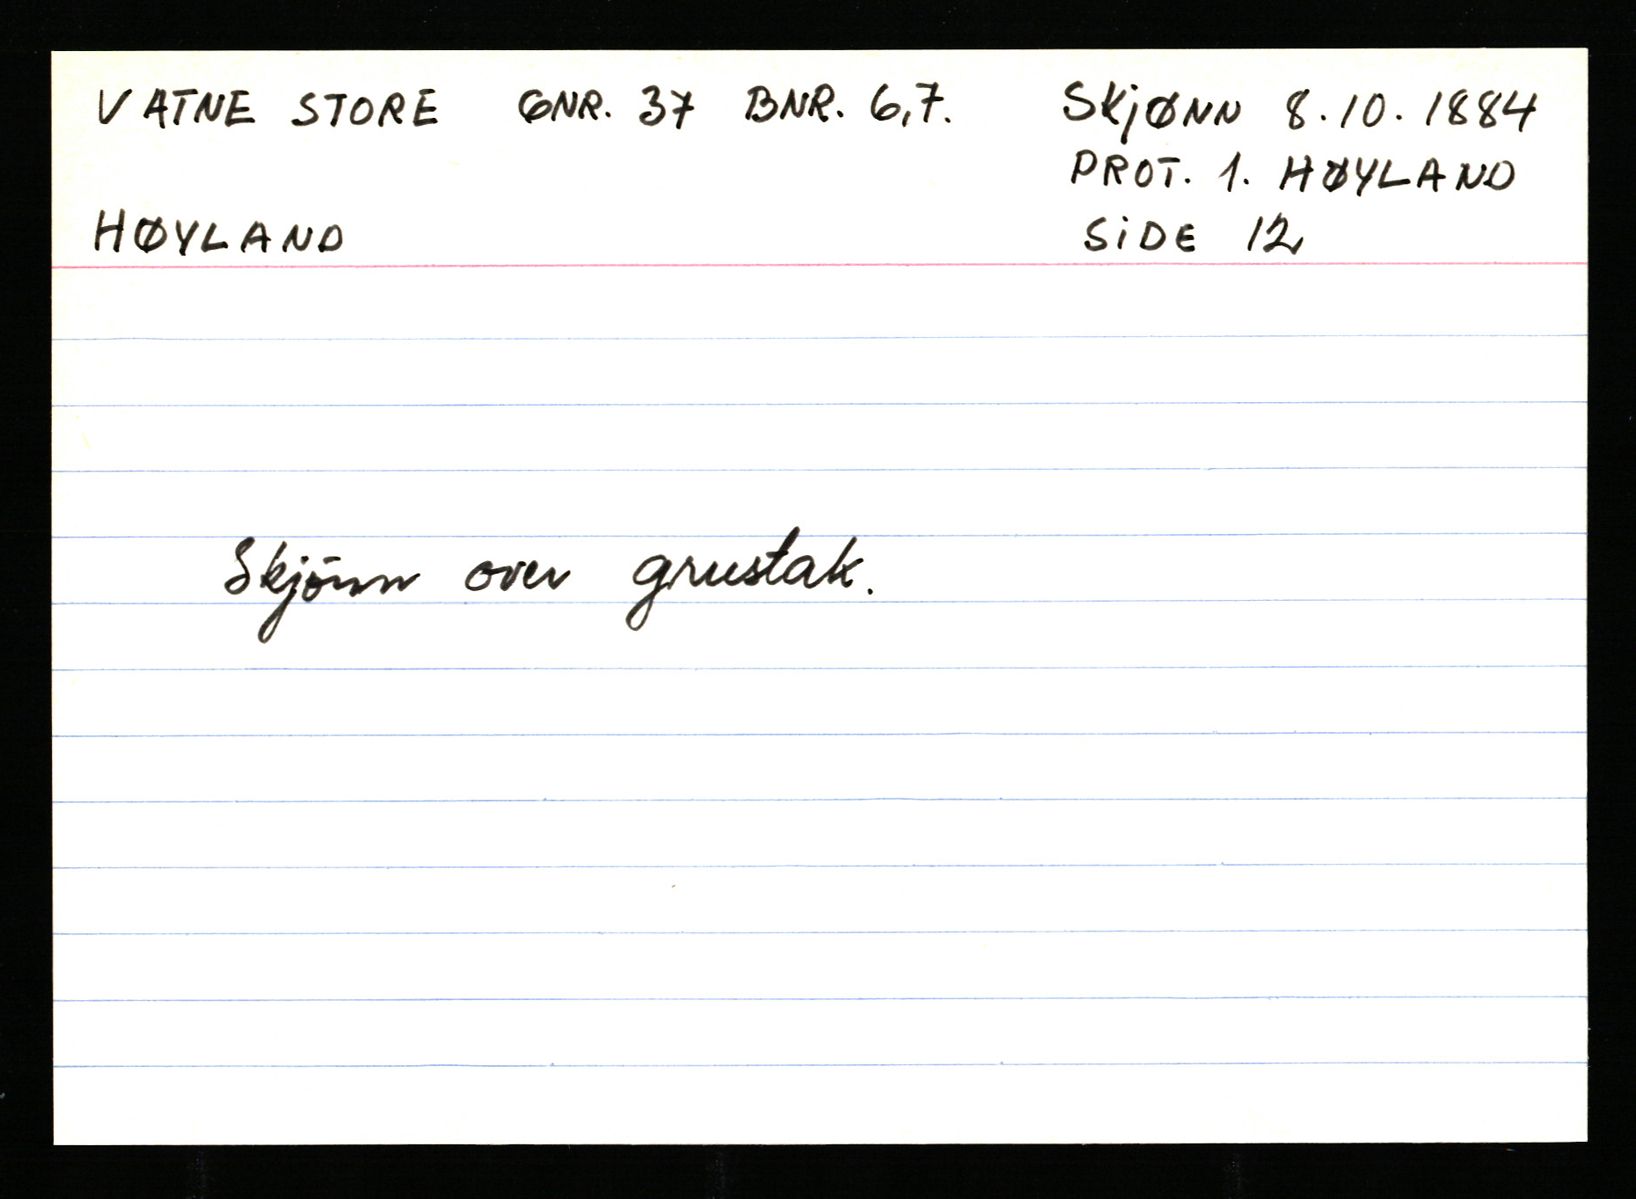 VATNE STORE GNR. 37 BNR. 6,7. SKjØNN 8.10.1884
PROT. 1. HØYLAND
HØYLAND SiDE 12
Skjönn over grustak.